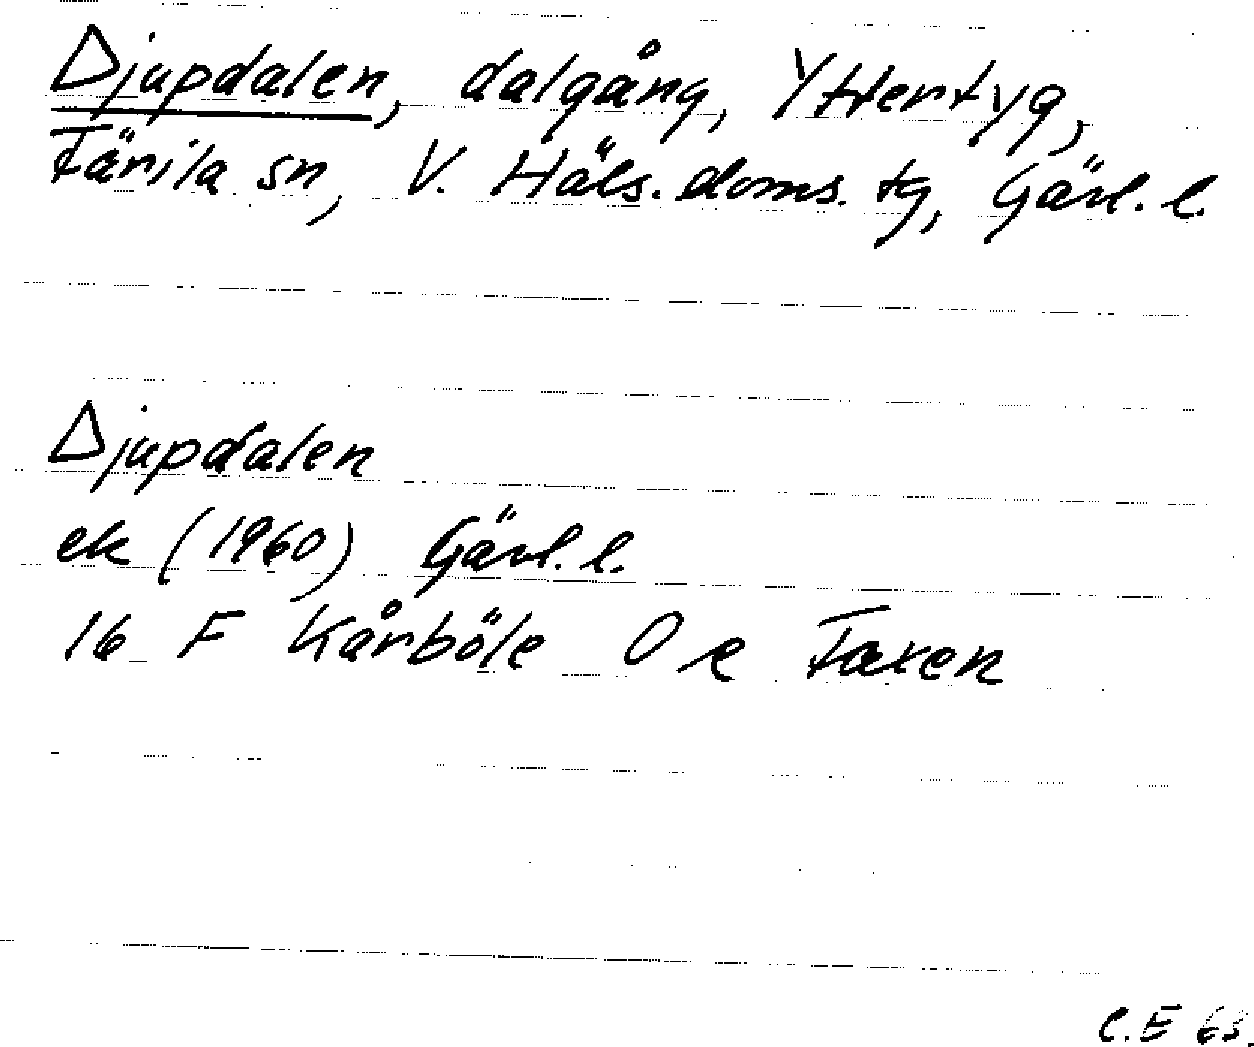 Djupdalen, dalgång, Yttertyg,
Färila sn, V. Häls. doms. tg, Gävl. l.
Djupdalen
ek (1960) Gävl. l.
16 F Kårböle O e Faxen
C.E 63.